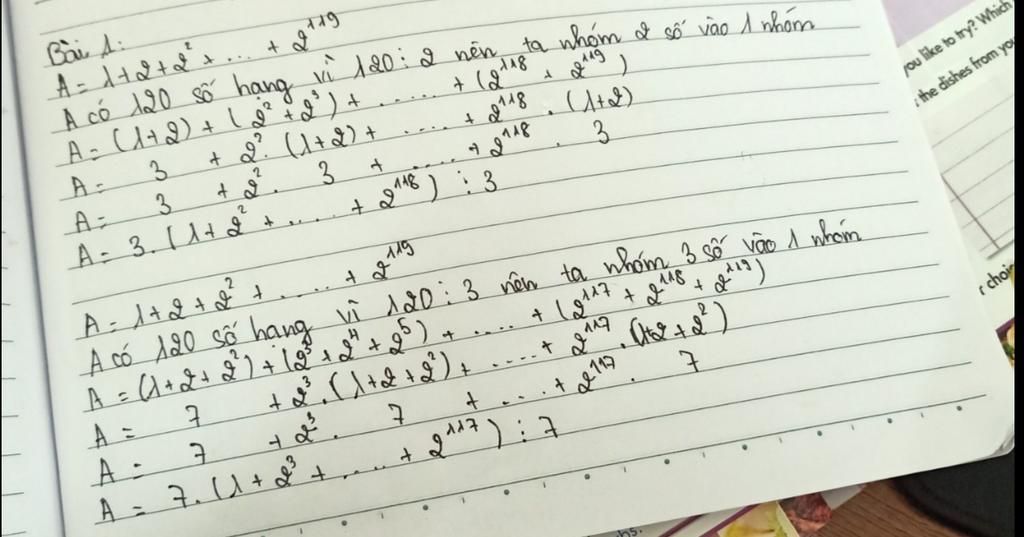 Bài 1:
A = 1+2+2² + ... + 2¹¹⁹
A có 120 số hạng vì 120 ⋮ 2 nên ta nhóm 2 số vào 1 nhóm
A = (1+2) + (2² + 2³) + ..... + (2¹¹⁸ + 2¹¹⁹)
A = 3 + 2². (1+2) + ..... + 2¹¹⁸ . (1+2)
A = 3 + 2² . 3 + ..... + 2¹¹⁸ . 3
A = 3. (1 + 2² + ..... + 2¹¹⁸) ⋮ 3
A = 1 + 2 + 2² + ..... + 2¹¹⁹
A có 120 số hạng vì 120 ⋮ 3 nên ta nhóm 3 số vào 1 nhóm
A = (1+2+2²) + (2³ + 2⁴ + 2⁵) + ..... + (2¹¹⁷ + 2¹¹⁸ + 2¹¹⁹)
A = 7 + 2³. (1+2+2²) + ..... + 2¹¹⁷ . (1+2+2²)
A = 7 + 2³. 7 + ... + 2¹¹⁷ . 7
A = 7. (1 + 2³ + ..... + 2¹¹⁷) ⋮ 7
you like to try? Which
the dishes from you
r choi
hs.